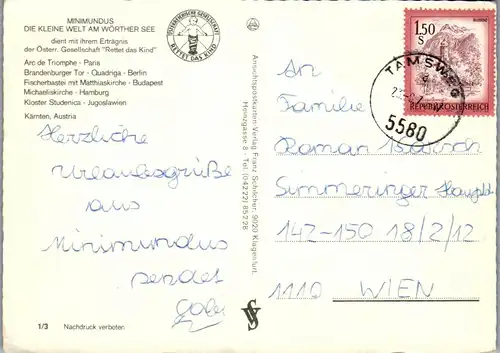 MINIMUNDUS
DIE KLEINE WELT AM WÖRTHER SEE
dient mit ihrem Erträgnis
der Österr. Gesellschaft "Rettet das Kind"
Arc de Triomphe - Paris
Brandenburger Tor - Quadriga - Berlin
Fischerbastei mit Matthiaskirche - Budapest
Michaeliskirche - Hamburg
Kloster Studenica - Jugoslawien
Kärnten, Austria
Herzliche
Urlaubsgrüße
aus
Minimundus
sendet
Gabi
1/3 Nachdruck verboten
ÖSTERREICHISCHE GESELLSCHAFT
RETTET DAS KIND
Ansichtspostkarten-Verlag Franz Schilcher, 9020 Klagenfurt,
Heinzgasse 8 - Tel. (04222) 85 2 28
1.50
S
REPUBLIK ÖSTERREICH
TAMSWEG
5580
An
Familie
Roman
Simmeringer Hauptst.
142-150 18/2/12
1110 WIEN